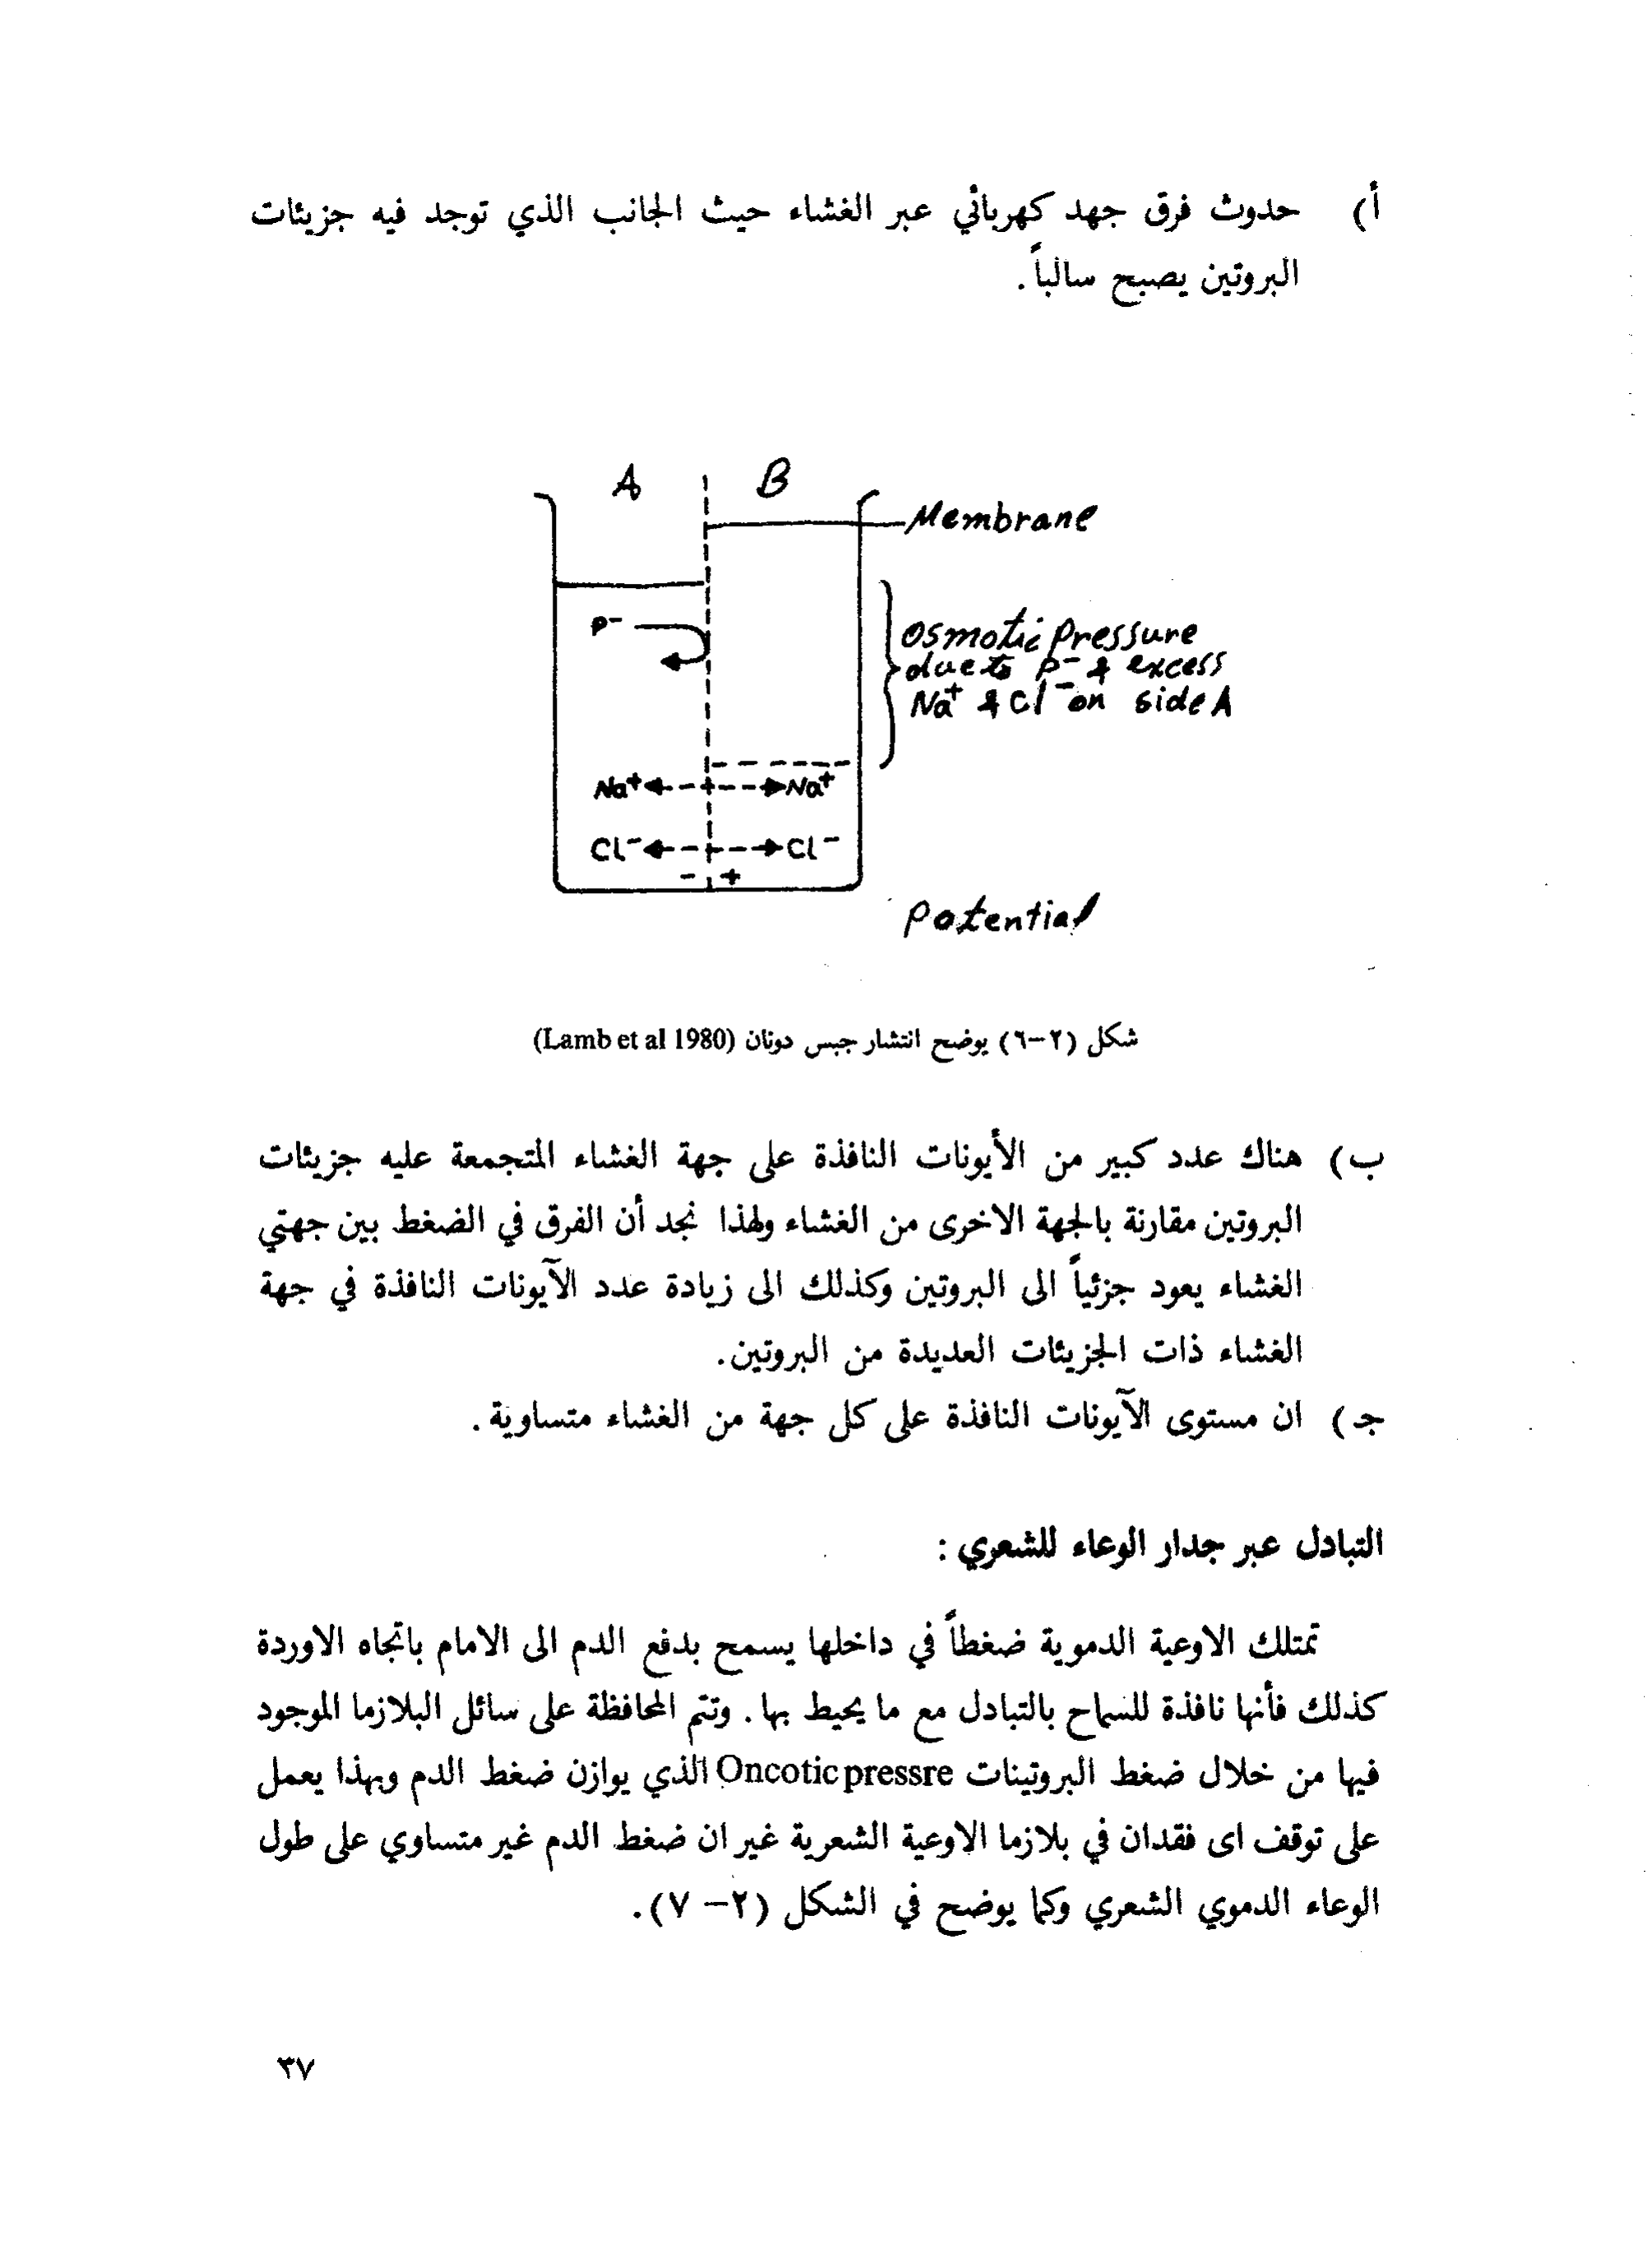 أ) حدوث فرق جهد كهربائي عبر الغشاء حيث الجانب الذي توجد فيه جزيئات
البروتين يصبح سالباً.
A B
Membrane
P⁻
Osmotic Pressure
due to P⁻ & excess
Na⁺ & Cl⁻ on side A
Na⁺ Na⁺
Cl⁻ Cl⁻
- +
Potential
شكل (٢-٦) يوضح انتشار جبس دونان (Lamb et al 1980)
ب) هناك عدد كبير من الأيونات النافذة على جهة الغشاء المتجمعة عليه جزيئات
البروتين مقارنة بالجهة الاخرى من الغشاء ولهذا نجد أن الفرق في الضغط بين جهتي
الغشاء يعود جزئياً الى البروتين وكذلك الى زيادة عدد الآيونات النافذة في جهة
الغشاء ذات الجزيئات العديدة من البروتين.
جـ) ان مستوى الآيونات النافذة على كل جهة من الغشاء متساوية.
التبادل عبر جدار الوعاء للشعري :
تمتلك الاوعية الدموية ضغطاً في داخلها يسمح بدفع الدم الى الامام باتجاه الاوردة
كذلك فأنها نافذة للسماح بالتبادل مع ما يحيط بها. وتتم المحافظة على سائل البلازما الموجود
فيها من خلال ضغط البروتينات Oncotic pressre الذي يوازن ضغط الدم وبهذا يعمل
على توقف اى فقدان في بلازما الاوعية الشعرية غير ان ضغط الدم غير متساوي على طول
الوعاء الدموي الشعري وكما يوضح في الشكل (٢- ٧).
٣٧